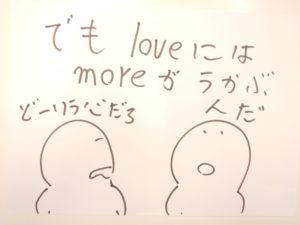 でも loveには
moreが うかぶ
んだ
どーいう心だろ